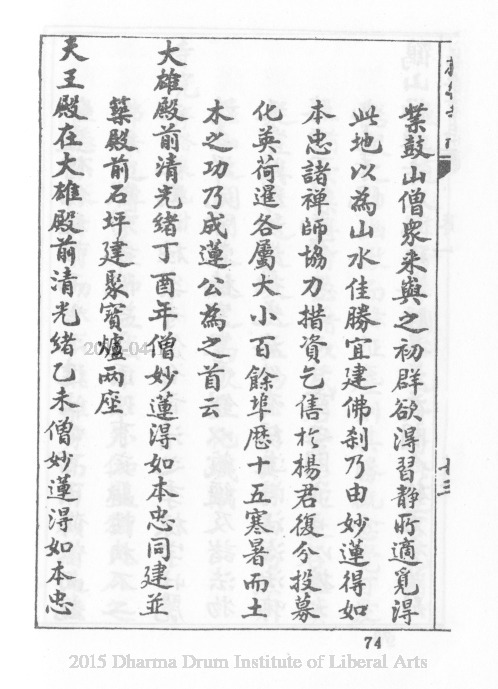 業鼓山僧眾來與之初群欲得習靜所適覓得
此地以為山水佳勝宜建佛剎乃由妙蓮得如
本忠諸禪師協力措資乞售於楊君復分投募
化英荷暹各屬大小百餘埠歷十五寒暑而土
木之功乃成蓮公為之首云
大雄殿前清光緒丁酉年僧妙蓮得如本忠同建並
築殿前石坪建聚寶爐兩座
天王殿在大雄殿前清光緒乙未僧妙蓮得如本忠
十三
74
2015 Dharma Drum Institute of Liberal Arts